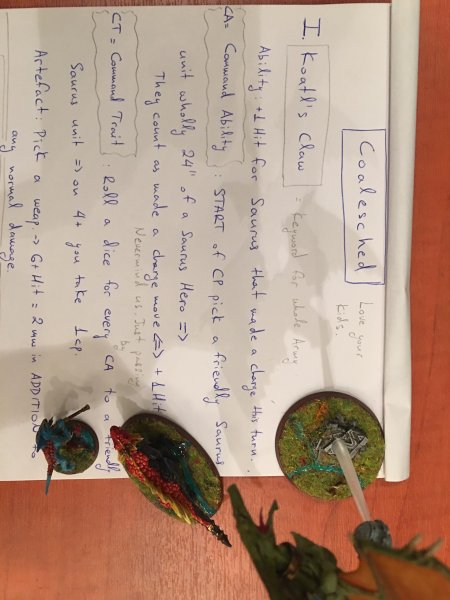 Coalesched
Love your
Kids.
I. Koatl's Claw = Keyword for whole Army
Ability: +1 Hit for Saurus that made a charge this turn.
CA = Command Ability : START of CP pick a friendly Saurus
unit wholly 24" of a Saurus Hero =>
They count as made a charge move <=> +1 Hit
Nevermind us. Just passing
by
CT = Command Trait : Roll a dice for every CA to a friendly
Saurus unit => on 4+ you take 1 cp.
Artefact: Pick a weap -> 6+Hit = 2 mw in ADDITION to
any normal damage